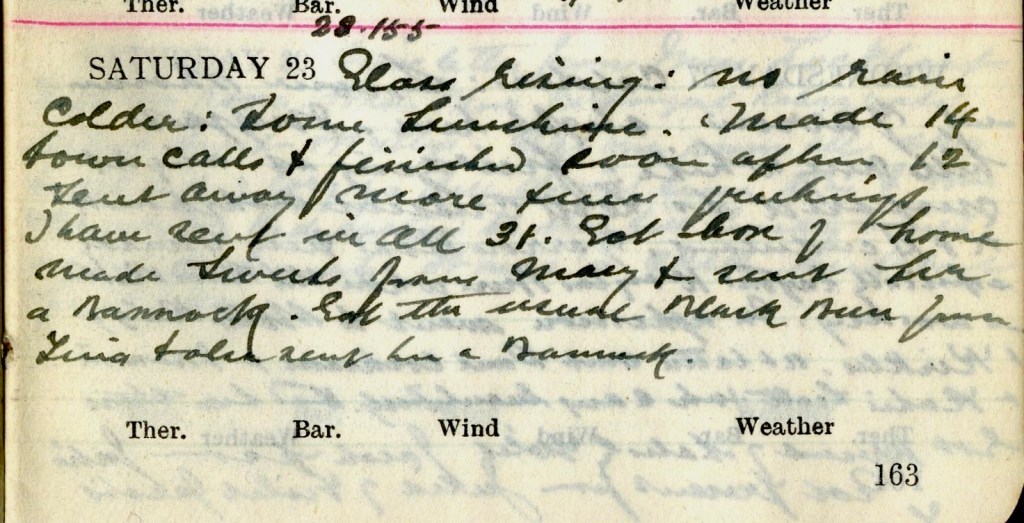 Ther. Bar. Wind Weather
28.155
SATURDAY 23 Glass rising: no rain
Colder: Some Sunshine. Made 14
town calls & finished soon after 12
Sent away more turn
I have sent in all 31. Got box of home
made Sweets from Mary & sent her
a Bannock. Got the usual Black Bun from
Tina & also sent her a Bannock.
Ther. Bar. Wind Weather
163